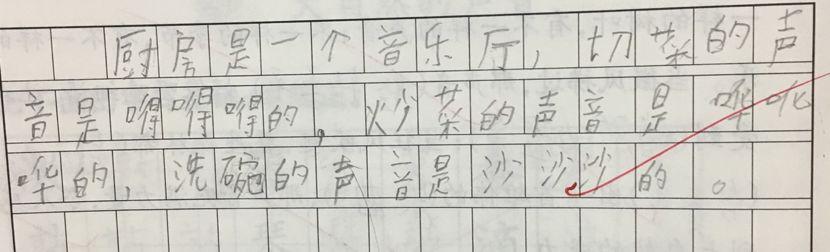 厨房是一个音乐厅，切菜的声
音是嘚嘚嘚的，炒菜的声音是哗吪
哗的，洗碗的声音是沙沙沙的。